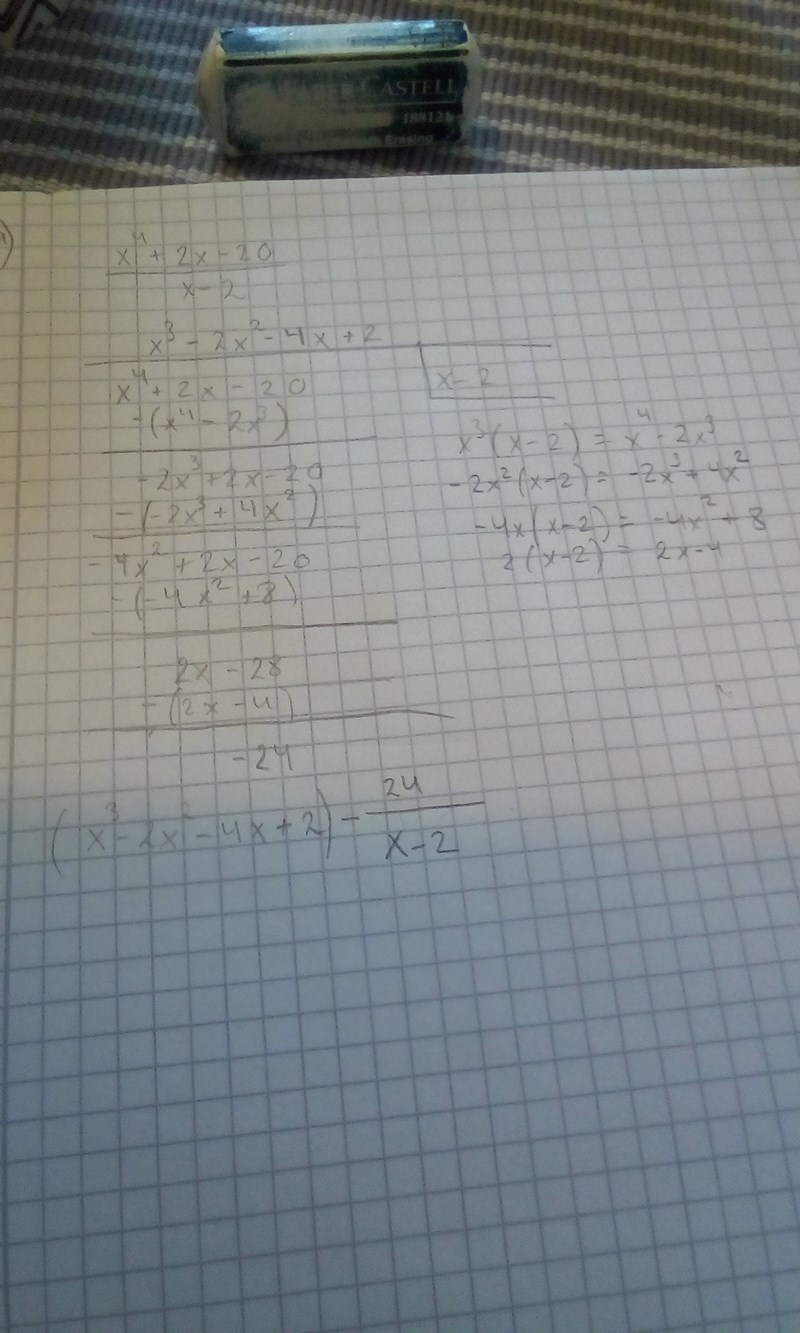 FABER-CASTELL
188121
Erasing
x⁴ + 2x - 20
x - 2
x³ - 2x² - 4x + 2
x⁴ + 2x - 20
x - 2
-(x⁴ - 2x³)
-2x³ + 2x - 20
-(-2x³ + 4x²)
-4x² + 2x - 20
-(-4x² + 8)
2x - 28
-(2x - 4)
-24
x³(x-2) = x⁴ - 2x³
-2x²(x-2) = -2x³ + 4x²
-4x(x-2) = -4x² + 8
2(x-2) = 2x - 4
(x³ - 2x² - 4x + 2) - 24
x - 2